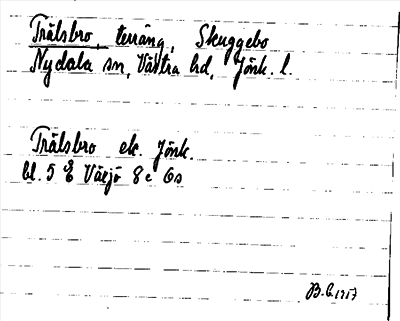 Trälsbro, terräng, Skuggebo
Nydala sn, Västra hd, Jönk. l.
Trälsbro ek. Jönk.
bl. 5 E Växjö 8 c Os
B.E. 1957